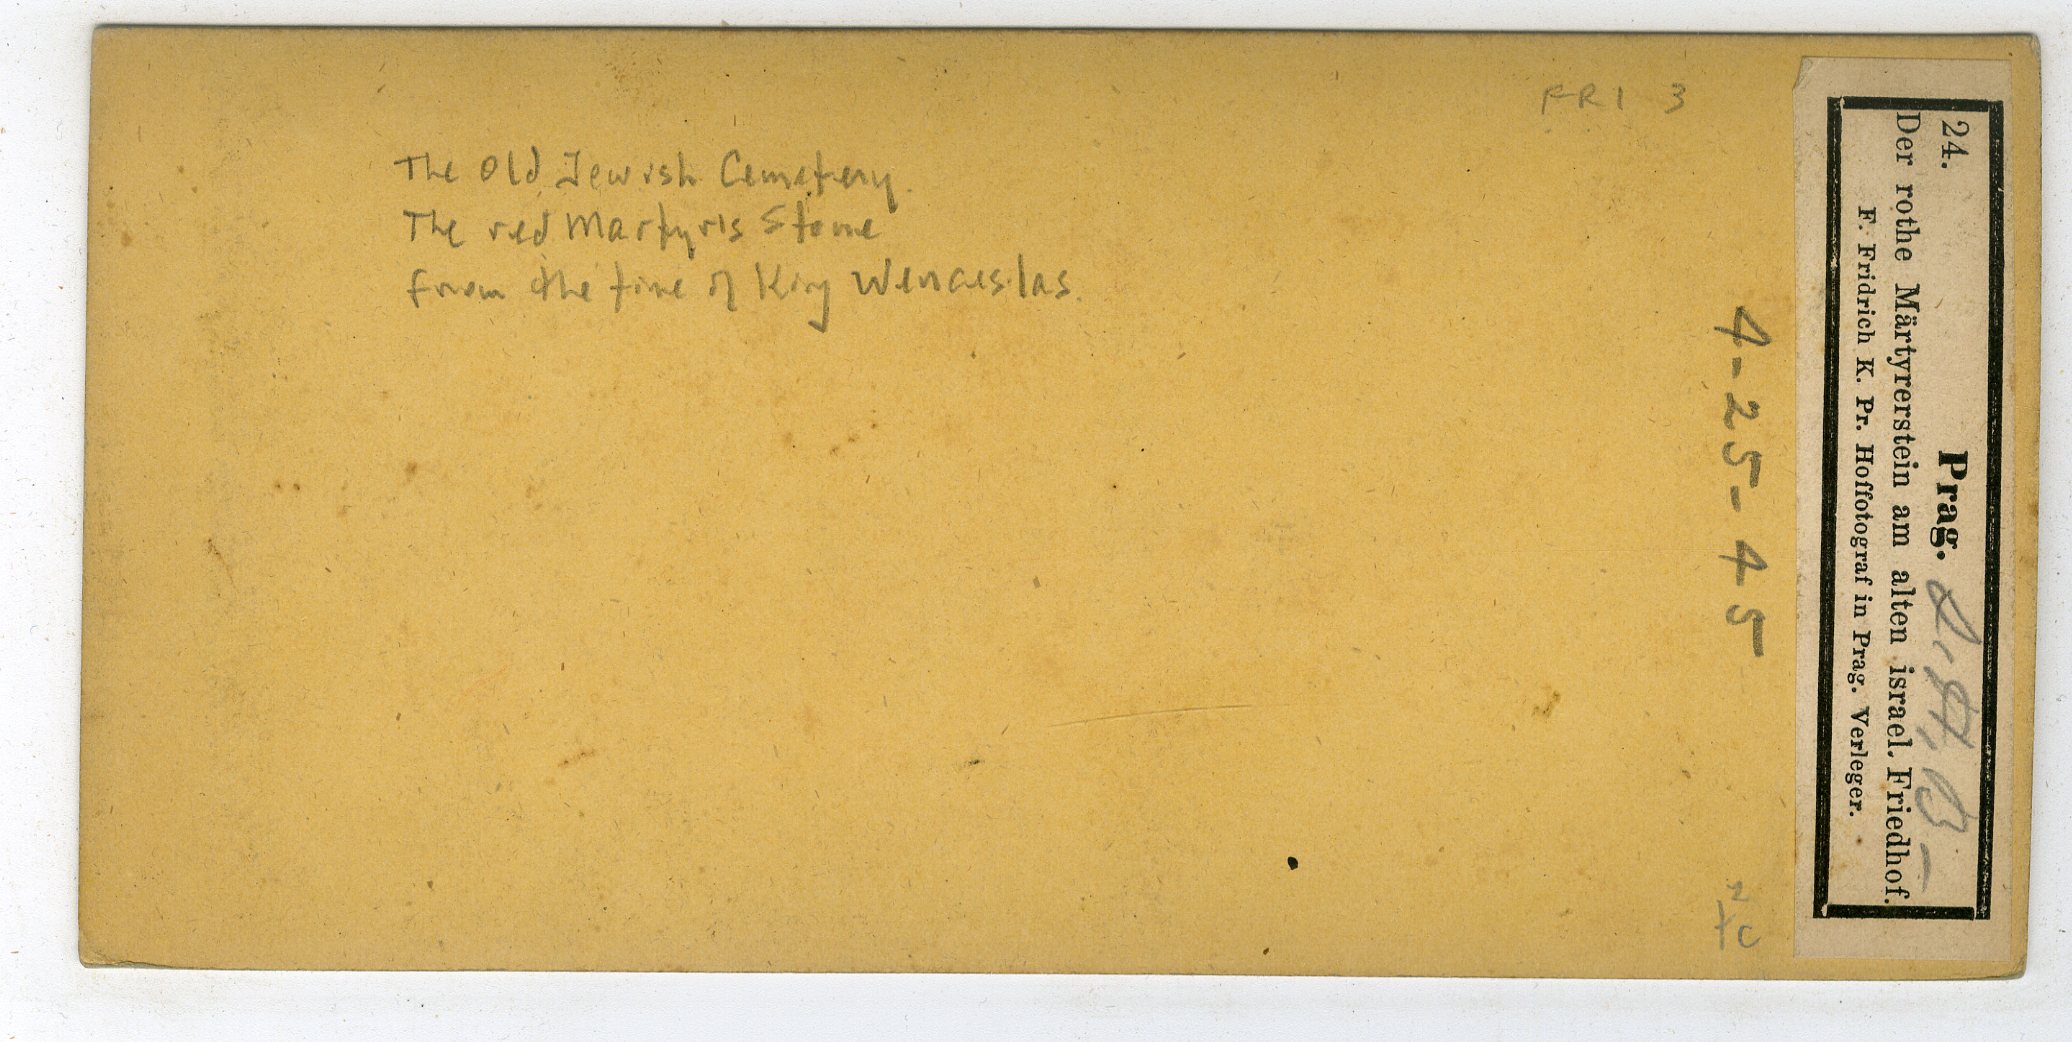 The Old Jewish Cemetery.
The red Martyr's Stone
from the time of King Wenceslas.
FRI 3
4-25-45
24.
Prag.
Der rothe Märtyrerstein am alten israel. Friedhof.
F. Fridrich K. Pr. Hoffotograf in Prag. Verleger.